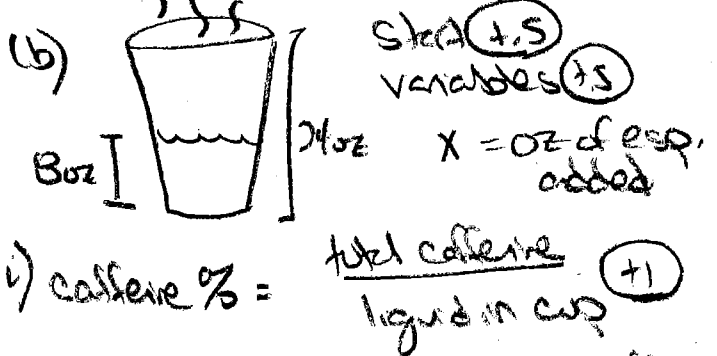 (b)
sketch +.5
variables +.5
24oz
8oz
x = oz of esp.
added
i) caffeine % = total caffeine / liquid in cup +1